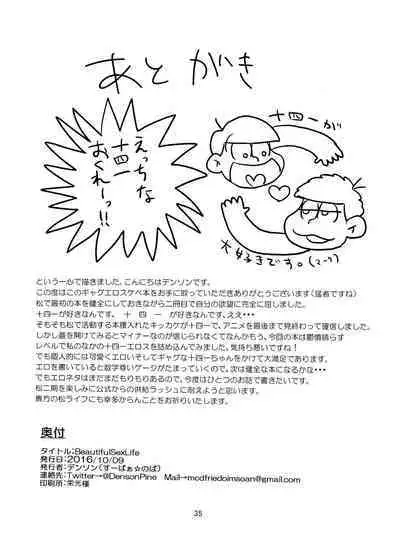 あとがき
えっちな
十四一
おくれーっ!!
十四一が
大好きです。(マーク)
という一心で描きました。こんにちはデンソンです。
この度はこのギャグエロスケベ本をお手に取っていただきありがとうございます(猛者ですね)
松で最初の本を健全にしておきながら二冊目で自分の欲望に完全に屈しました。
十四一が好きなんです、 十 四 一 が好きなんです、ええ・・・
そもそも松で活動する本腰入れたキッカケが十四一で、アニメを最後まで見終わって確信しました。
しかし蓋を開けてみるとマイナーなのが信じられなくてなんかもう、今回の本は鬱憤晴らす
レベルで私のなかの十四一エロスを詰め込んでみました。気持ち悪いですね!
でも個人的には可愛くエロいそしてギャグな十四一ちゃんをかけて大満足であります。
エロを書いていると数字尊いゲージがたまっていくので、次は健全な本になるかな・・・
でもエロネタはまだまだもりもりあるので、今度はひとつのお話で書きたいです。
松二期を楽しみに公式からの供給ラッシュに耐えようと思います。
貴方の松ライフにも幸多からんことをお祈りいたします。
奥付
タイトル:BeautifulSexLife
発行日:2016/10/09
発行者:デンソン(すーぱぁ☆のば)
連絡先:Twitter→@DensonPine Mail→modfriedoimsoan@gmail.com
印刷所:栄光様
35